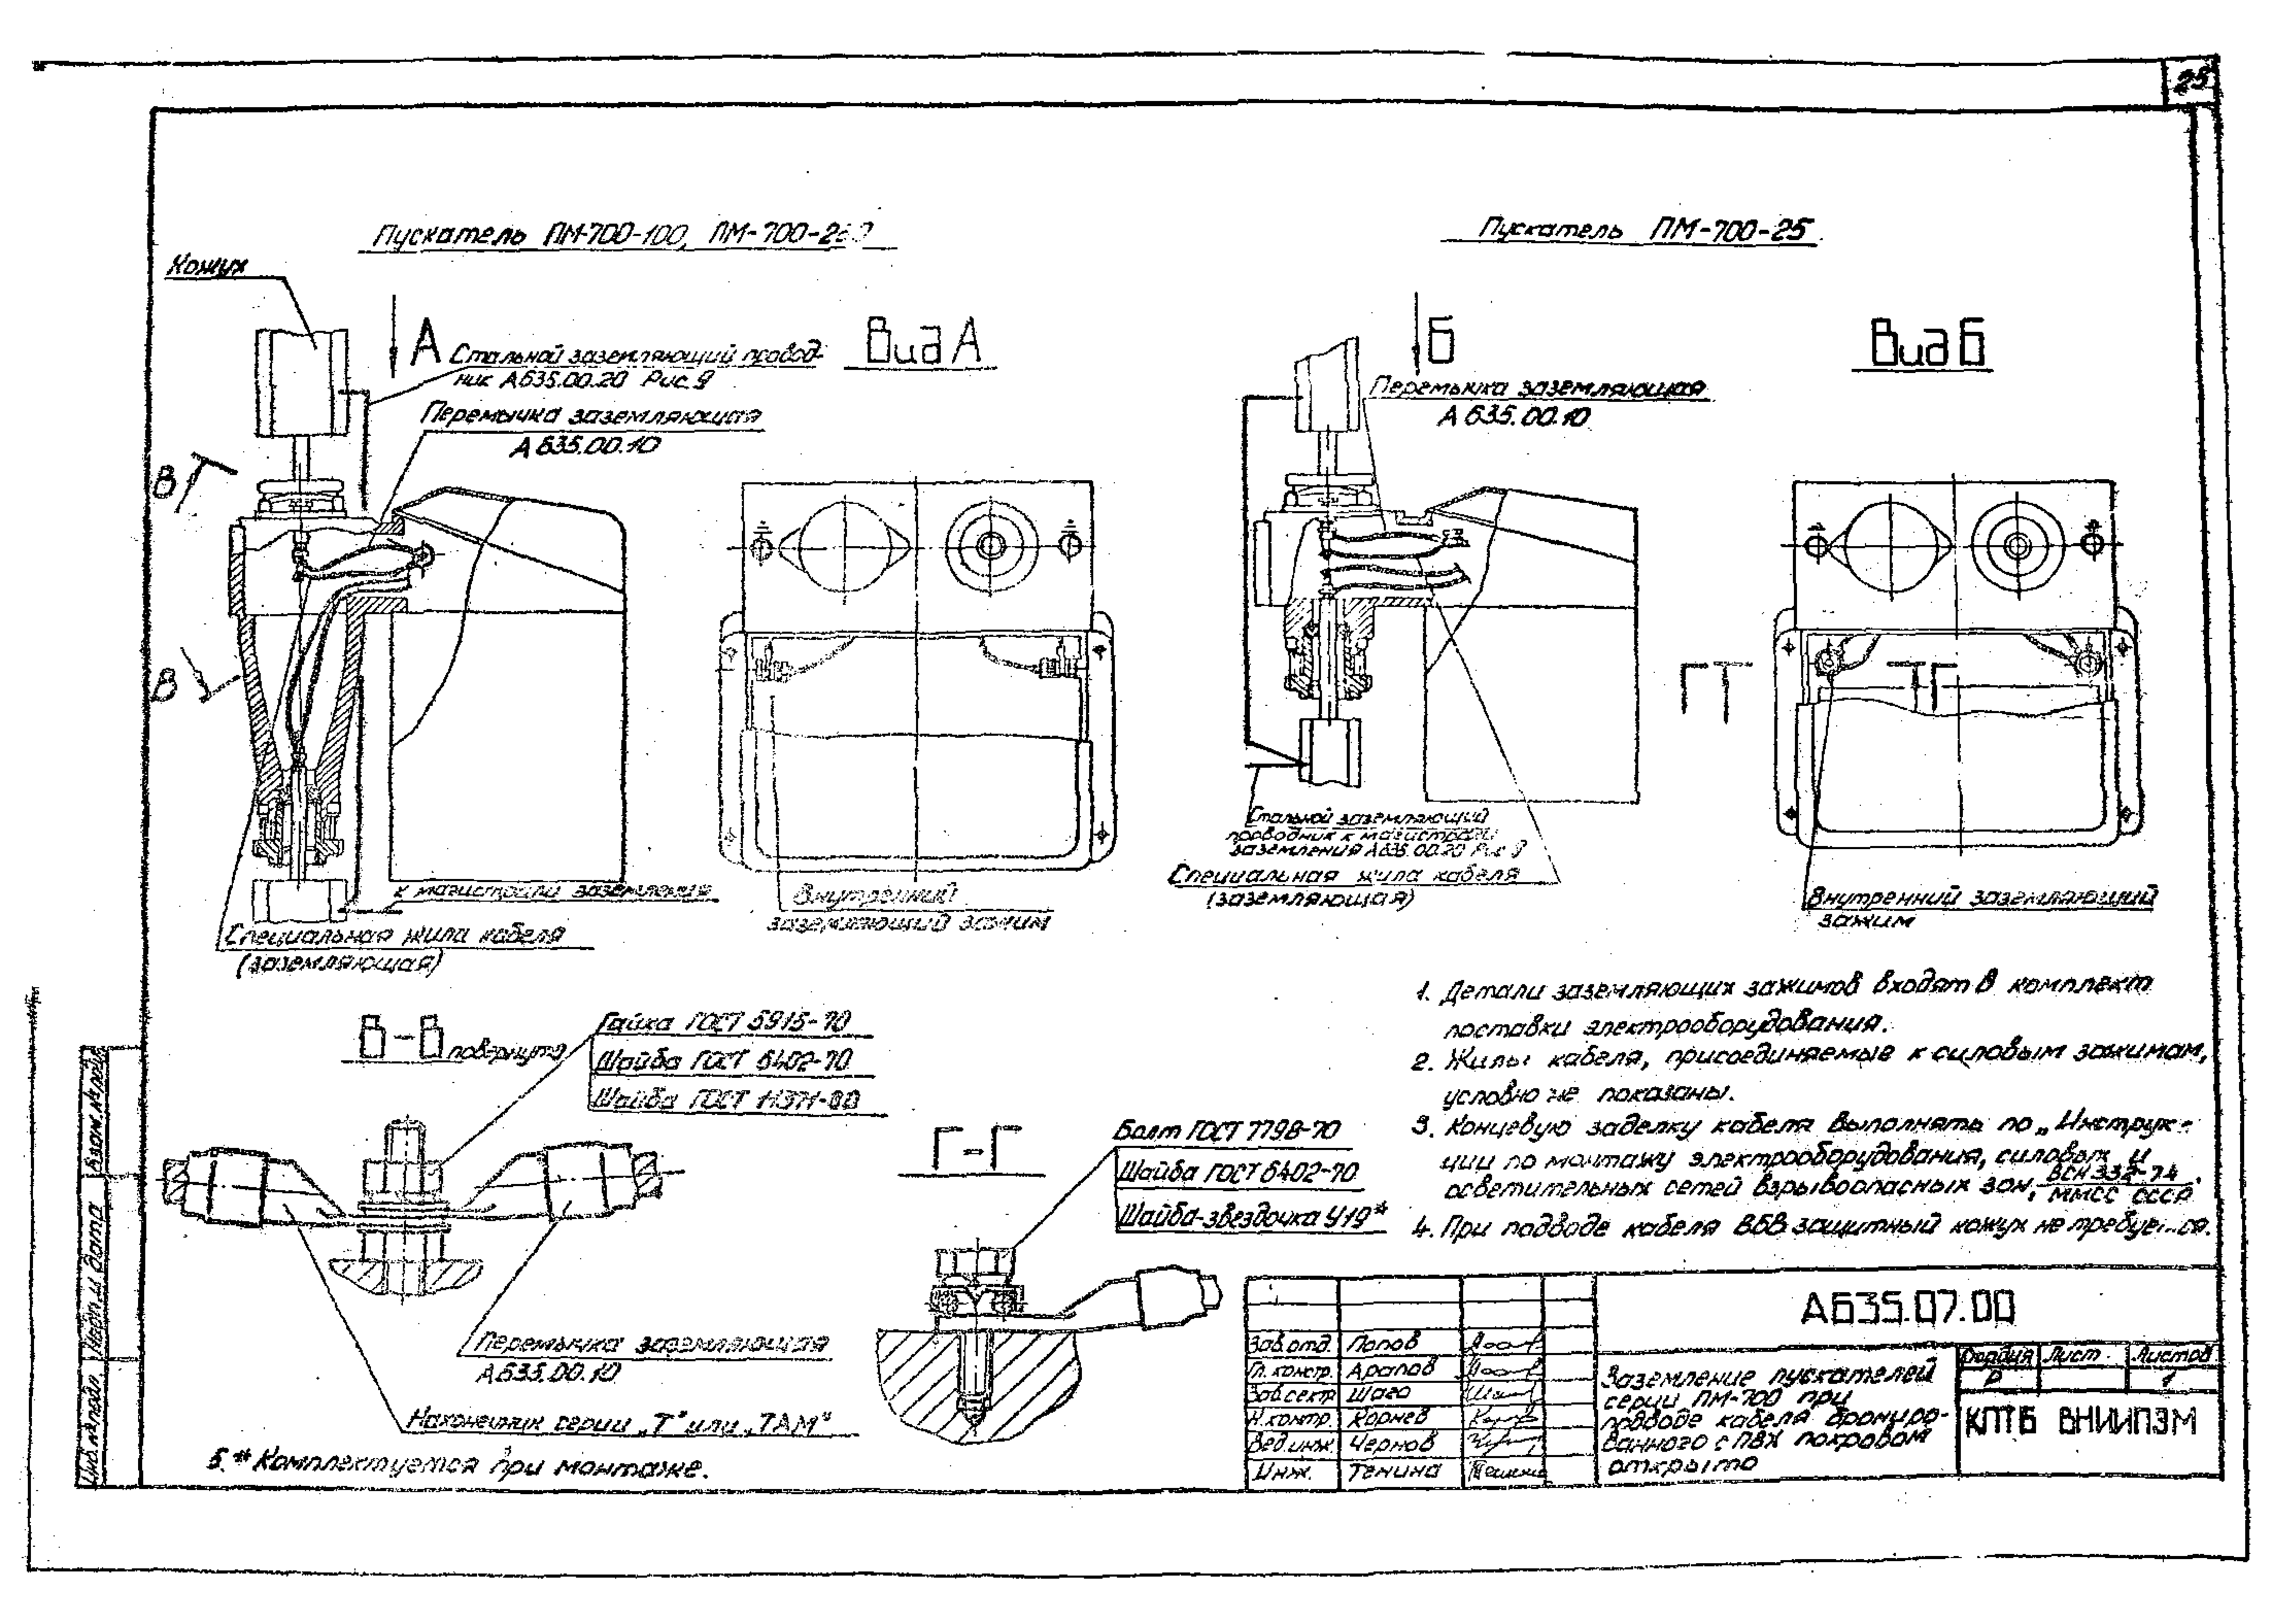 25
Пускатель ПМ-700-100, ПМ-700-2
Пускатель ПМ-700-25
Кожух
А
Стальной заземляющий провод-
ник А635.00.20 Рис. 9
Вид А
Перемычка заземляющая
А635.00.10
Б
Перемычка заземляющая
А635.00.10
Вид Б
В
В
Г
Г
к магистрали заземления
Специальная жила кабеля
(заземляющая)
Внутренний
заземляющий зажим
Стальной заземляющий
проводник к магистрали
заземления А635.00.20 Рис 9
Специальная жила кабеля
(заземляющая)
Внутренний заземляющий
зажим
В-В повернуто
Гайка ГОСТ 5915-70
Шайба ГОСТ 6402-70
Шайба ГОСТ 11371-
Г-Г
Болт ГОСТ 7798-70
Шайба ГОСТ 6402-70
Шайба-звездочка У19*
Перемычка заземляющая
А635.00.10
Наконечник серии „Т" или „ТАМ"
5.* Комплектуется при монтаже.
1. Детали заземляющих зажимов входят в комплект
поставки электрооборудования.
2. Жилы кабеля, присоединяемые к силовым зажимам,
условно не показаны.
3. Концевую заделку кабеля выполнять по „Инструк-
ции по монтажу электрооборудования, силовых и
осветительных сетей взрывоопасных зон, ВСН 332-74 / ММСС СССР.
4. При подводе кабеля ВБВ защитный кожух не требуется.
А635.07.00
Зав.отд. Попов
Гл. констр. Арапов
Зав.сект Шаго
Н.контр. Корнев
Вед.инж. Чернов
Инж. Тенина
Заземление пускателей
серии ПМ-700 при
подводе кабеля брониро-
ванного с ПВХ покровом
открыто
Лист Листов
Р 1
КПТБ ВНИИПЭМ
Взам. инв.
Подп. и дата
Инв.№ подл.